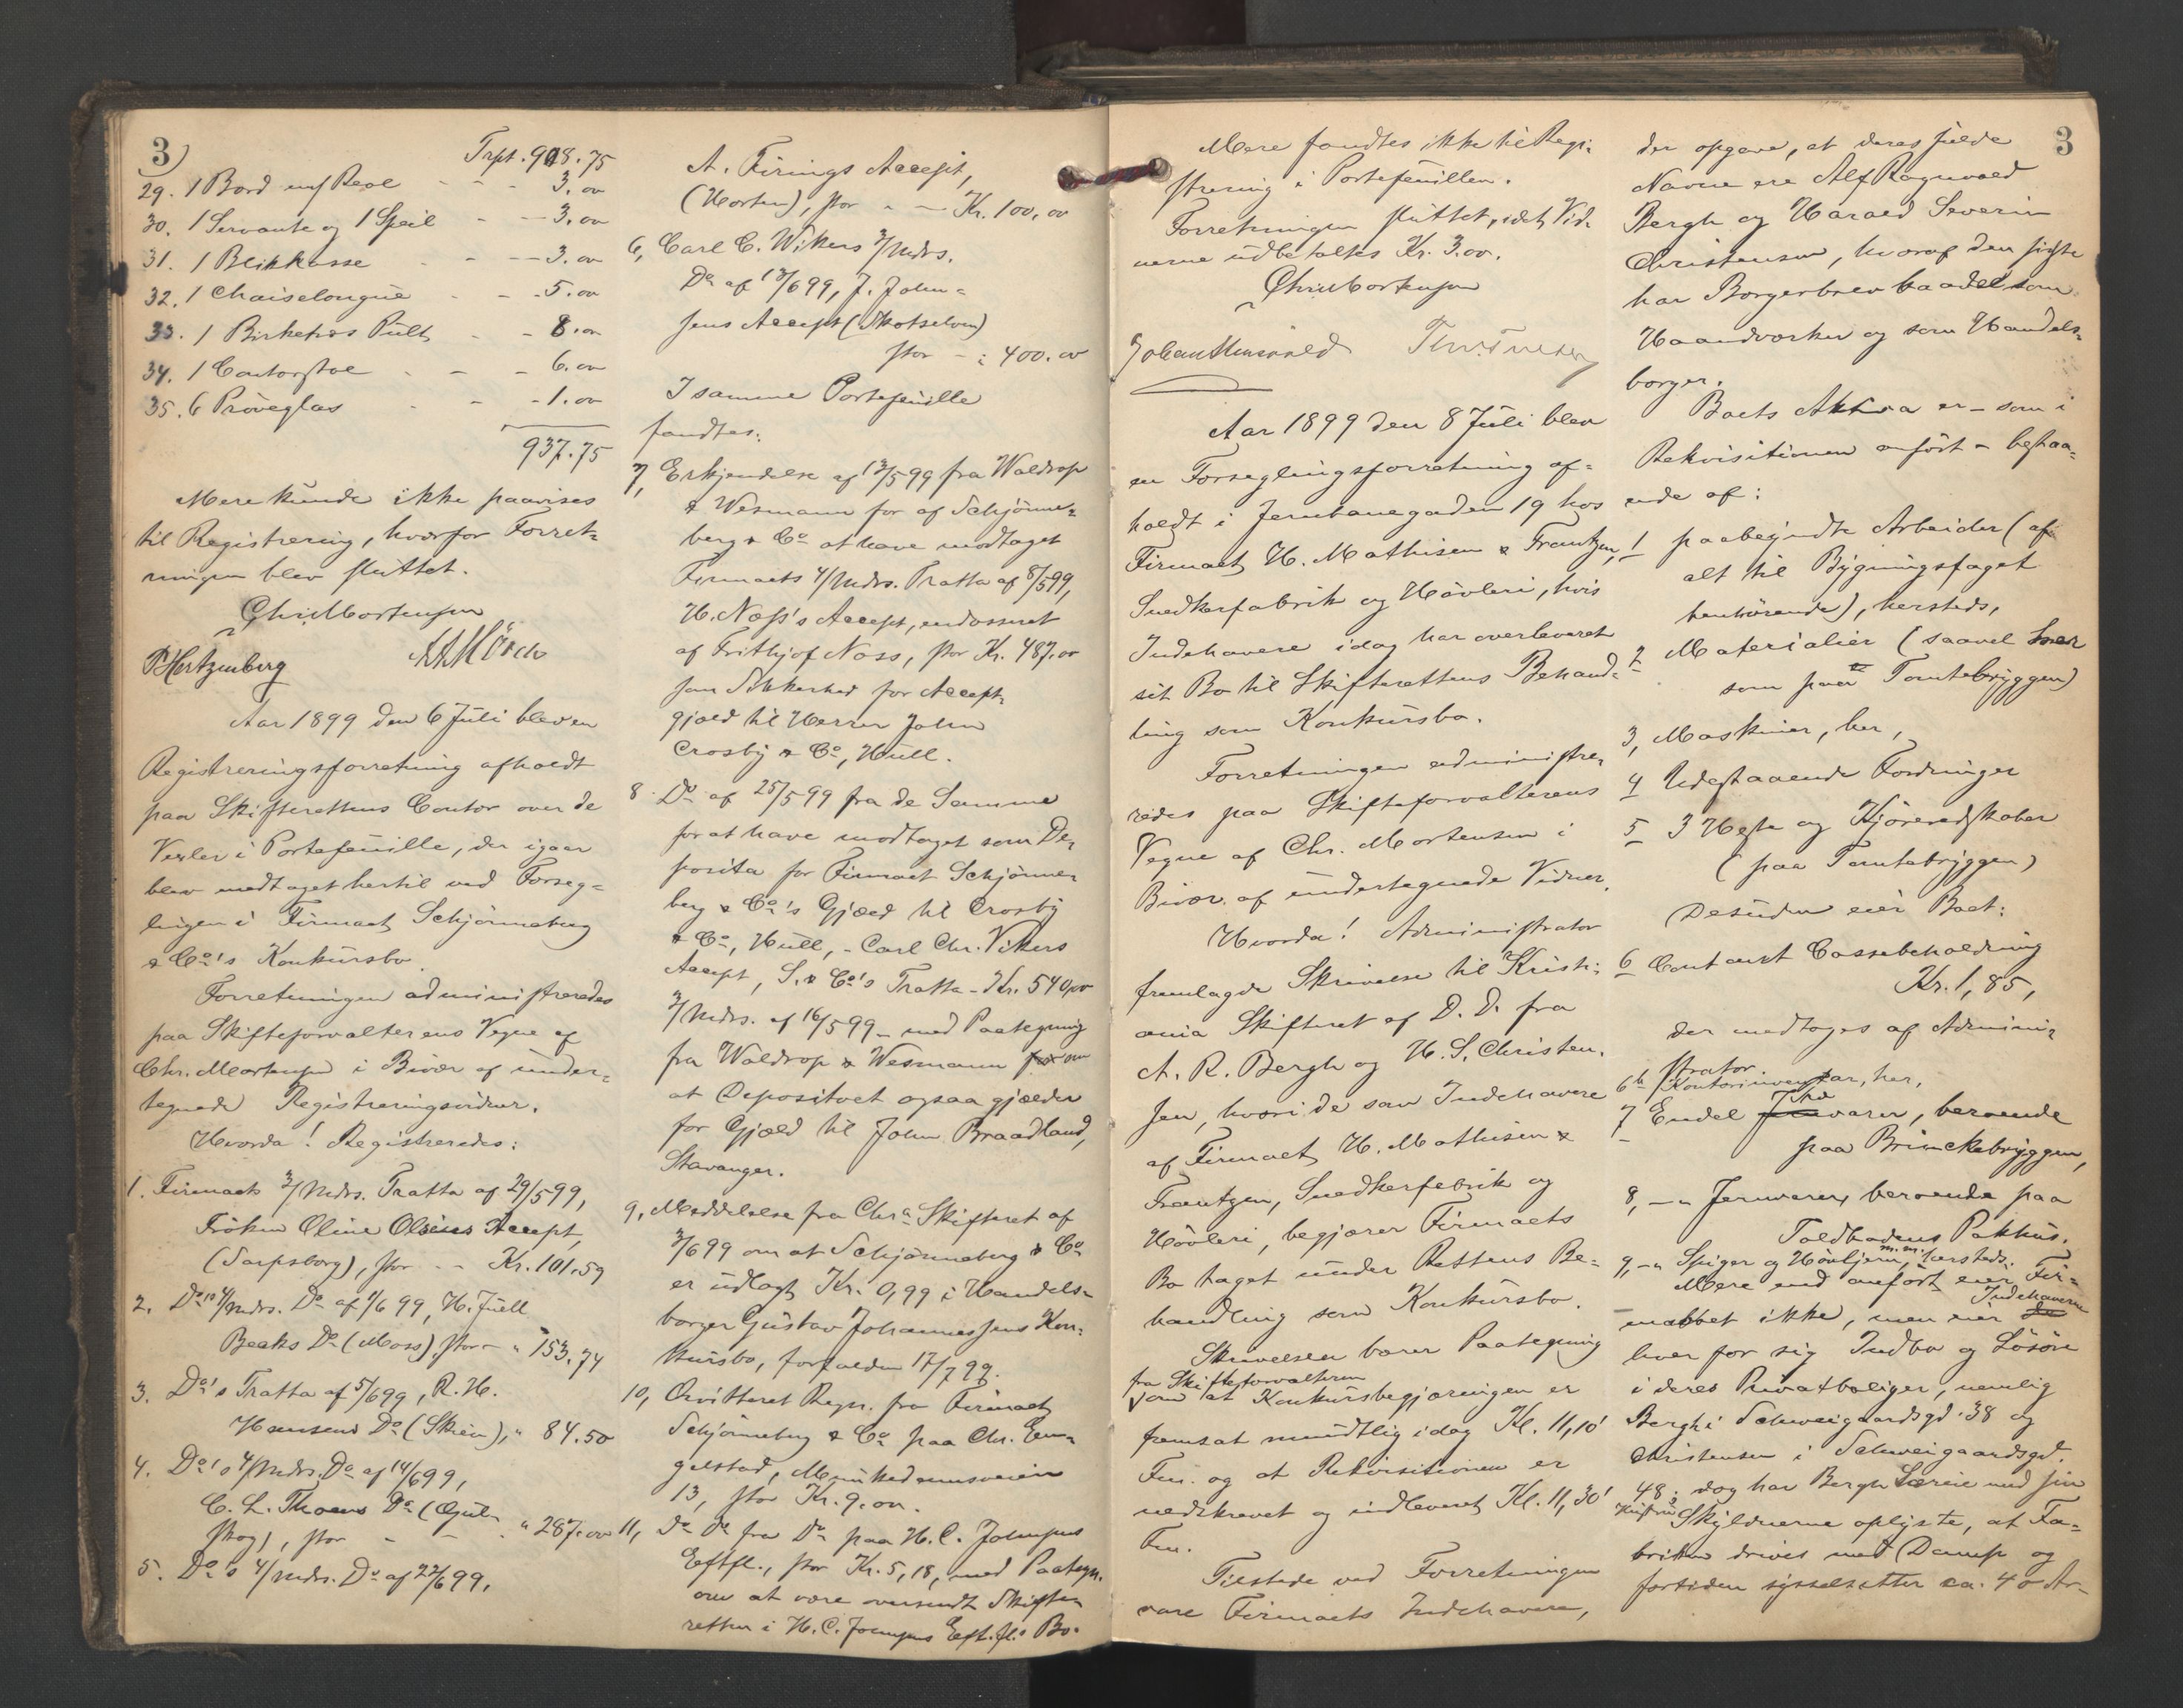 3)
Trpt. 918.75
29. 1 Bord m/ Reol - - - 3.00
30. 1 Servante og 1 Speil - - 3.00
31. 1 Blikkasse - - - 3.00
32. 1 Chaiselongue - - - 5.00
33. 1 Birketræs Pult - - 8.00
34. 1 Contorstol - - - 6.00
35. 6 Pröveglas - - - 1.00
937.75
Mere kunde ikke paavises
til Registrering, hvorfor Forret-
ningen blev sluttet.
Chr. Mortensen
P. Hertzenberg
Aar 1899 den 6 Juli blev en
Registreringsforretning afholdt
paa Skifterettens Contor over de
Vexler i Portefeuille, der igaar
blev medtaget hertil ved Forseg-
lingen i Firmaet Schjönneberg
& Co's Konkursbo.
Forretningen administreredes
paa Skifteforvalterens Vegne af
Chr. Mortensen i Bivær af under-
tegnede Registreringsvidner.
Hvorda! Registreredes:
1. Firmaets 3/Mdrs. Tratta af 29/5 99,
Fröken Oline Olsens Accept,
(Sarpsborg), stor - - Kr. 101.59
2. Do 4/mdrs. Do af 1/6 99, H. Juell
Beeks Do (Moss), stor - " 153.74
3. Do's Tratta af 5/6 99, R. H.
Hansens Do (Skien), " 84.50
4. Do's 4/Mdrs. Do af 14/6 99,
C. L. Thoens Do (Gjul-
skog), stor - - " 287.00
5. Do's 4/mdrs. Do af 22/6 99,
A. Firings Accept,
(Horten), stor - - Kr. 100,00
6, Carl C. Wikers 3/Mdrs.
Do af 13/6 99, J. John-
sens Accept (Skotselven)
stor - " 400.00
I samme Portefeuille
fandtes:
7, Erkjendelse af 13/5 99 fra Waldrop
& Wesmann for af Schjönne-
berg & Co at have modtaget
Firmaets 4/Mdrs. Tratta af 8/5 99,
H. Næss's Accept, endosseret
af Frithjof Næss, stor Kr. 487.00
som Sikkerhed for Accept-
gjæld til Herrer John
Crosby & Co, Hull.
8. Do af 25/5 99 fra de Samme
for at have modtaget som De-
posita for Firmaet Schjönne-
berg & Co's Gjæld til Crosby
& Co, Hull, - Carl Chr. Vikers
Accept, S. & Co's Tratta - Kr. 540,00
3/Mdrs. af 16/5 99 - med Paategning
fra Waldrop & Wesmann for om
at Depositoet ogsaa gjælder
for Gjæld til John Braadland,
Stavanger.
9, Meddelelse fra Chra Skifteret af
3/6 99 om at Schjönneberg & Co
er udlagt Kr. 0,99 i Handels-
borger Gustav Johannessens Kon-
kursbo, forfalden 17/7 99.
10, Qvitteret Regn. fra Firmaet
Schjönneberg & Co paa Chr. En-
gelstad, Munkedamsveien
13, stor Kr. 9.00.
11, Do Do fra Do paa H. C. Johnsens
Eftfl., stor Kr. 5,18, med Paategn.
om at være oversendt Skifte-
retten i H. C. Johnsens Eft.fl.s Bo.
3
Mere fandtes ikke til Regi-
strering i Portefeuillen.
Forretningen sluttet, idet Vid-
nerne udbetaltes Kr. 3.00.
Chr. Mortensen
Aar 1899 den 8 Juli blev
en Forseglingsforretning af-
holdt i Jernbanegaden 19 hos
Firmaet H. Mathisen & Frantzen,
Snedkerfabrik og Hövleri, hvis
Indehavere idag har overleveret
sit Bo til Skifterettens Behand-
ling som Konkursbo.
Forretningen administre-
redes paa Skifteforvalterens
Vegne af Chr. Mortensen i
Bivær. af undertegnede Vidner.
Hvorda! Administrator
fremlagde Skrivelse til Kristi-
ania Skifteret af D. D. fra
A. R. Bergh og H. S. Christen-
sen, hvori de som Indehavere
af Firmaet H. Mathisen &
Frantzen, Snedkerfabrik og
Hövleri, begjærer Firmaets
Bo taget under Rettens Be-
handling som Konkursbo.
Skrivelsen bærer Paategning
fra Skifteforvalteren
om at Konkursbegjæringen er
fremsat mundtlig idag Kl. 11,10'
Fm. og at Rekvisitionen er
nedskrevet og indleveret Kl. 11,30'
Fm.
Tilstede ved Forretningen
vare Firmaets Indehavere,
der opgave, at deres fulde
Navne ere Alf Ragnvald
Bergh og Harald Severin
Christensen, hvoraf den sidste
har Borgerbrev baade som
Haandværker og som Handels-
borger.
Boets Aktiva er - som i
Rekvisitionen anfört - bestaa-
ende af:
1 paabegyndte Arbeider (af
alt til Bygningsfaget
henhörende), hersteds,
2 Materialier (saavel her
som paa Tomtebryggen)
3, Maskiner, her,
4 Udestaaende Fordringer
5 3 Heste og Kjöreredskaber
(paa Tomtebryggen)
Desuden eier Boet:
6 Contant Cassebeholdning
Kr. 1,85,
der medtages af Admini-
strator.
6b Kontorinventar, her,
7 Endel varer, beroende
paa Brinckebryggen,
8, -"- Jernvarer, beroende paa
Toldbodens Pakhus.
9, -"- Spiger og Hövljern m.m. hersteds.
Mere end anfört eier Fir-
maet ikke, men eier Indehaverne
hver for sig Indbo og Lösöre
i deres Privatboliger, nemlig
Bergh i Schweigaardsgd. 38 og
Christensen i Schweigaardsgd.
48; dog har Bergh Særeie med sin
Hustru.
Skyldnerne oplyste, at Fa-
briken drives med Damp og
fortiden sysselsætter ca. 40 Ar-